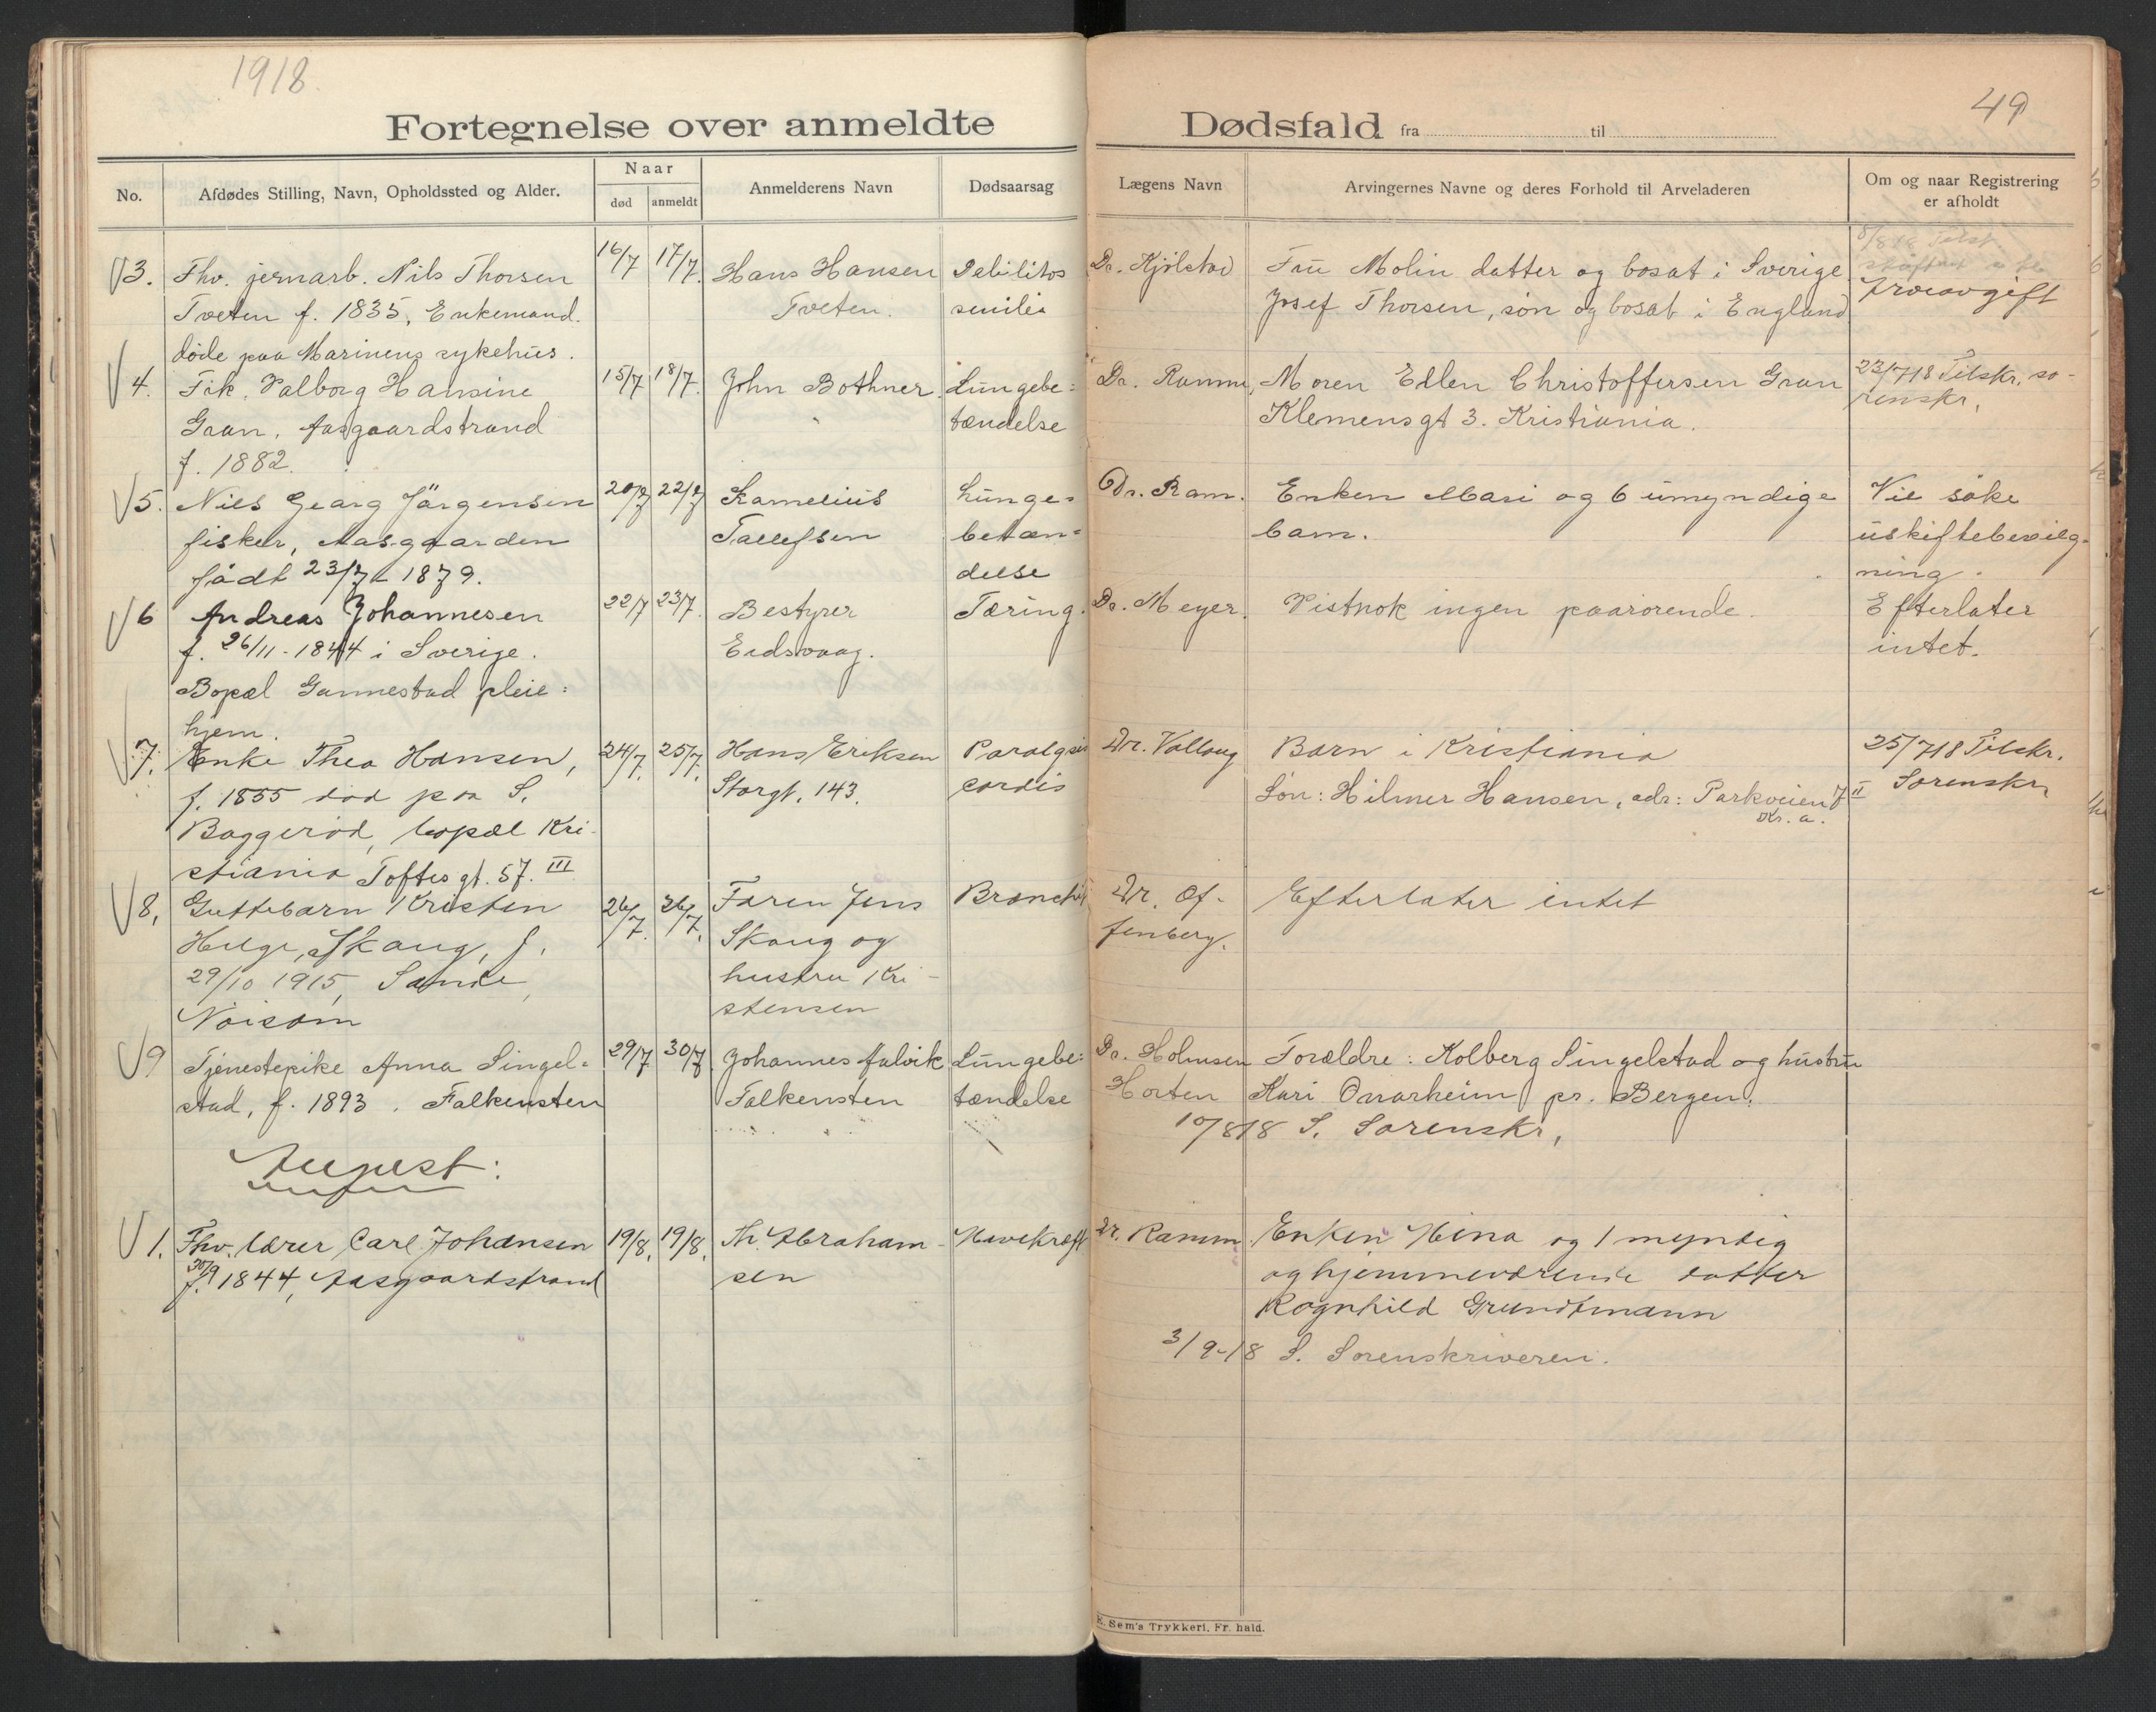 1918.
49
Fortegnelse over anmeldte Dødsfald fra til
No.
Afdødes Stilling, Navn, Opholdssted og Alder.
Naar
død anmeldt
Anmelderens Navn
Dødsaarsag
Lægens Navn
Arvingernes Navne og deres Forhold til Arveladeren
Om og naar Registrering
er afholdt
3. Fhv. jernarb. Nils Thorsen
Tveten f. 1835, Enkemand.
døde paa Marinens sykehus.
16/7 17/7.
Hans Hansen
Tveten.
Debilitas
senilis
Dr. Kjølstad
Fru Molin datter og bosat i Sverige
Josef Thorsen, søn og bosat i England
Arveavgift
4. Frk. Valborg Hansine
Gran, Aasgaardstrand
f. 1882.
15/7 18/7.
John Bothner
Lungebe=
tændelse
Dr. Ramm,
Moren Ellen Christoffersen Gran
Klemensgt 3. Kristiania.
23/718 Tilskr. so-
renskr.
5. Nils Georg Jørgensen
fisker, Aasgaarden
født 23/7 - 1879.
20/7 22/7
Kornelius
Tallefsen
Lunge=
betæn=
delse
Dr. Ram.
Enken Mari og 6 umyndige
barn.
Vil søke
uskiftebevilg-
ning.
6 Andreas Johannesen
f. 26/11 - 1844 i Sverige.
Bopæl Gannestad pleie=
hjem.
22/7 23/7.
Bestyrer
Eidsvaag.
Tæring.
Dr. Meyer.
Vistnok ingen paarørende.
Efterlater
intet.
7. Enke Thea Hansen,
f. 1855 død paa S.
Baggerød, bopæl Kri-
stiania Toftes gt. 57. III
24/7. 25/7.
Hans Eriksen
Storgt. 143.
Paralysis
cordis
Dr. Vallaug
Barn i Kristiania
Søn: Hilmer Hansen, adr: Parkveien 7 II
Kr. a.
25/718 Tilskr.
Sorenskr,
8. Guttebarn Kristen
Helge Skaug, f.
29/10 1915, Sande,
Nøisom
26/7. 26/7.
Faren Jens
Skaug og
hustru Kri-
stensen
Dr. Of-
fenberg.
Efterlater intet
9 Tjenestepike Anna Singel=
stad, f. 1893. Falkensten
29/7 30/7.
Johannes Aalvik
Falkensten
Lungebe=
tændelse
Dr. Holmsen
Horten
Forældre: Kolberg Singelstad og hustru
Kari Onarheim pr. Bergen.
10/818 S. Sorenskr,
August:
1. Fhv. lærer Carl Johansen
f. 30/9 1844, Aasgaardstrand
19/8. 19/8.
Th. Abraham-
sen
Mavekræft
Dr. Ramm.
Enken Nina og 1 myndig
og hjemmeværende datter
Ragnhild Grundtmann
3/9-18 S. Sorenskriveren.
E. Sem's Trykkeri, Fr. hald.